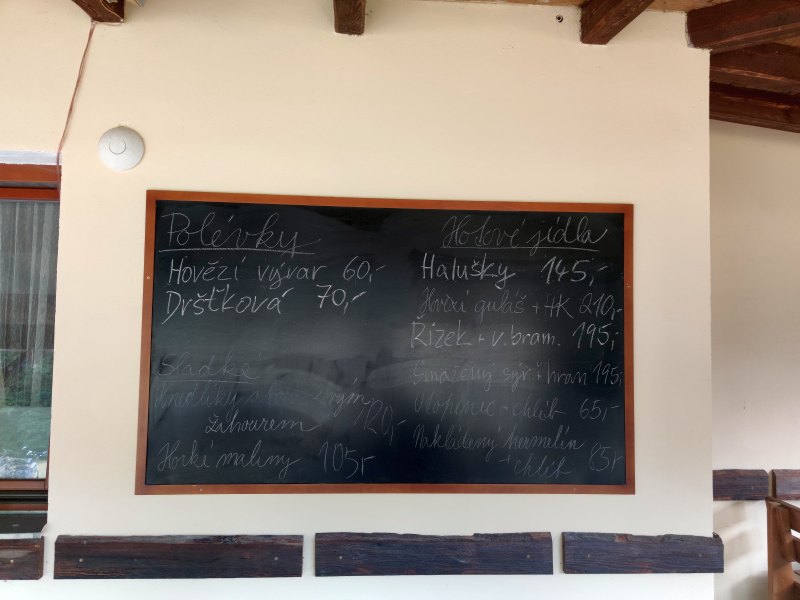 Polévky
Hovězí vývar 60,-
Dršťková 70,-
Sladké
Knedlíky s
žahourem 120,-
Horké maliny 105,-
Hotové jídla
Halušky 145,-
Hovězí guláš + HK 210,-
Řízek + v. bram. 195,-
Smažený sýr + hran 195,-
Utopenec + chléb 65,-
Nakládaný hermelín
+ chléb 85,-